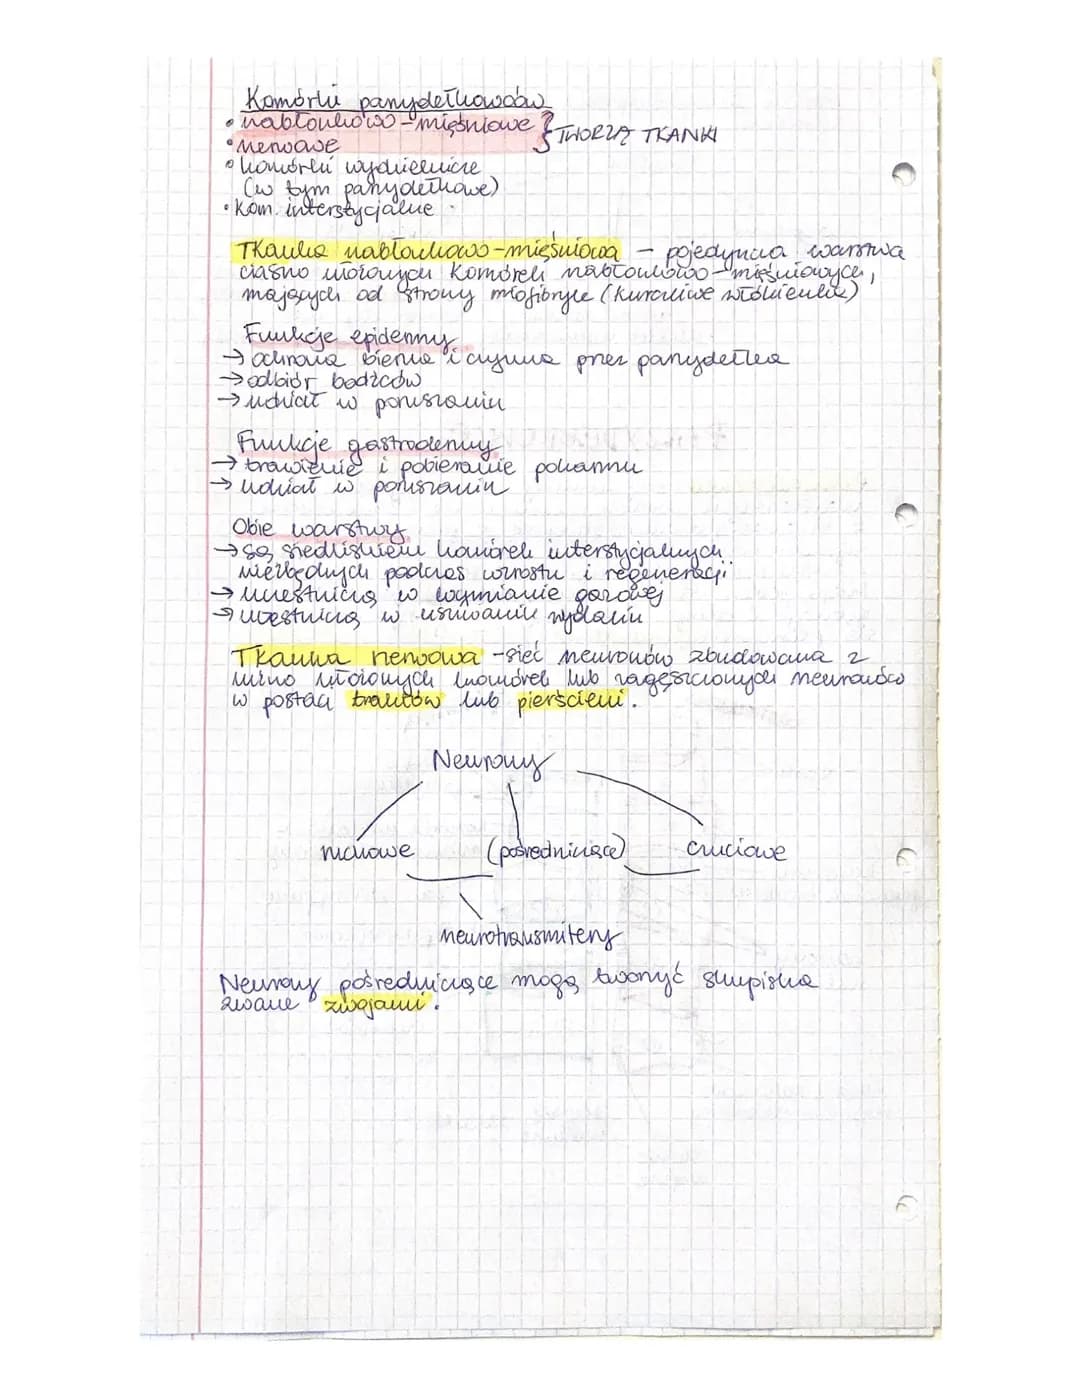 Komórki parzydełkowców
• nabłonkowo-mięśniowe } TWORZĄ TKANKI
• nerwowe
• komórki wydzielnicze
(w tym parzydełkowe)
• Kom. interstycjalne
Tkanka nabłonkowo-mięśniowa - pojedyncza warstwa
ciasno ułożonych komórek nabłonkowo-mięśniowych,
mających od strony miofibryle (kurczliwe włókienka)
Funkcje epidermy
→ ochrona bierna i czynna przez parzydełka
→ odbiór bodźców
→ udział w poruszaniu
Funkcje gastrodermy
→ trawienie i pobieranie pokarmu
→ udział w poruszaniu
Obie warstwy
→ są siedliskiem komórek interstycjalnych
niezbędnych podczas wzrostu i regeneracji
→ uczestniczą w wymianie gazowej
→ uczestniczą w usuwaniu wydalin
Tkanka nerwowa - sieć neuronów zbudowana z
luźno ułożonych komórek lub zagęszczonych neuronów
w postaci traktów lub pierścieni.
Neurony
ruchowe (pośredniczące) czuciowe
neurotransmitery
Neurony pośredniczące mogą tworzyć skupiska
zwane zwojami.